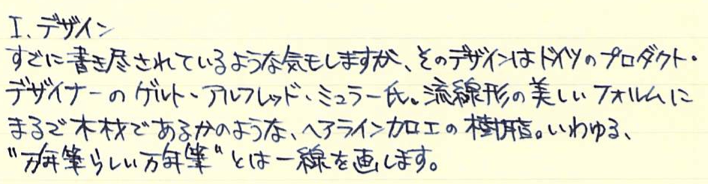 I. デザイン
すでに書き尽されているような気もしますが、そのデザインはドイツのプロダクト・
デザイナーのゲルト・アルフレッド・ミュラー氏。流線形の美しいフォルムに
まるで木材であるかのような、ヘアライン加工の樹脂。いわゆる、
"万年筆らしい万年筆"とは一線を画します。